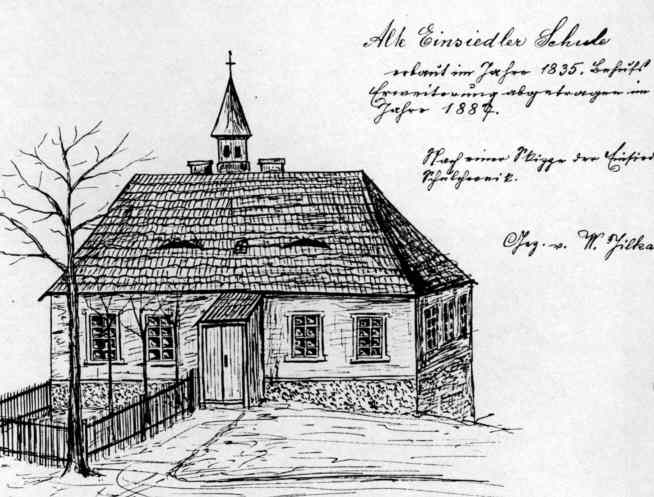 Alte Einsiedler Schule
erbaut im Jahre 1835. Behufs
Erweiterung abgetragen im
Jahre 1887.
Nach einer Skizze der Einsied
Schulchronik.
Gez. v. W. Jilka